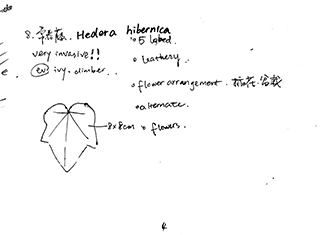 8. 常春藤. Hedera hibernica
very invasive!!
ivy. climber
• 5 lobed.
• leathery.
• flower arrangement.
• alternate.
8x8cm
• flowers.